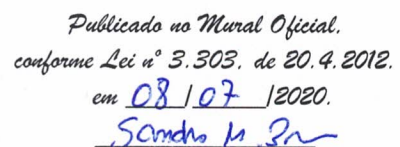 Publicado no Mural Oficial,
conforme Lei nº 3.303, de 20.4.2012.
em 08 / 07 /2020.
Sandro M